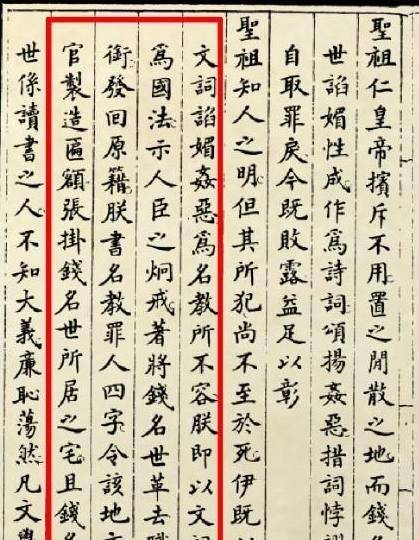 聖祖仁皇帝擯斥不用置之閒散之地而錢名
世諂媚性成作為詩詞頌揚姦惡措詞悖謬
自取罪戾今既敗露益足以彰
聖祖知人之明但其所犯尚不至於死伊既以
文詞諂媚姦惡為名教所不容朕即以文詞
為國法示人臣之炯戒著將錢名世革去職
銜發回原籍朕書名教罪人四字令該地方
官製造匾額張掛錢名世所居之宅且錢名
世係讀書之人不知大義廉恥蕩然凡文學